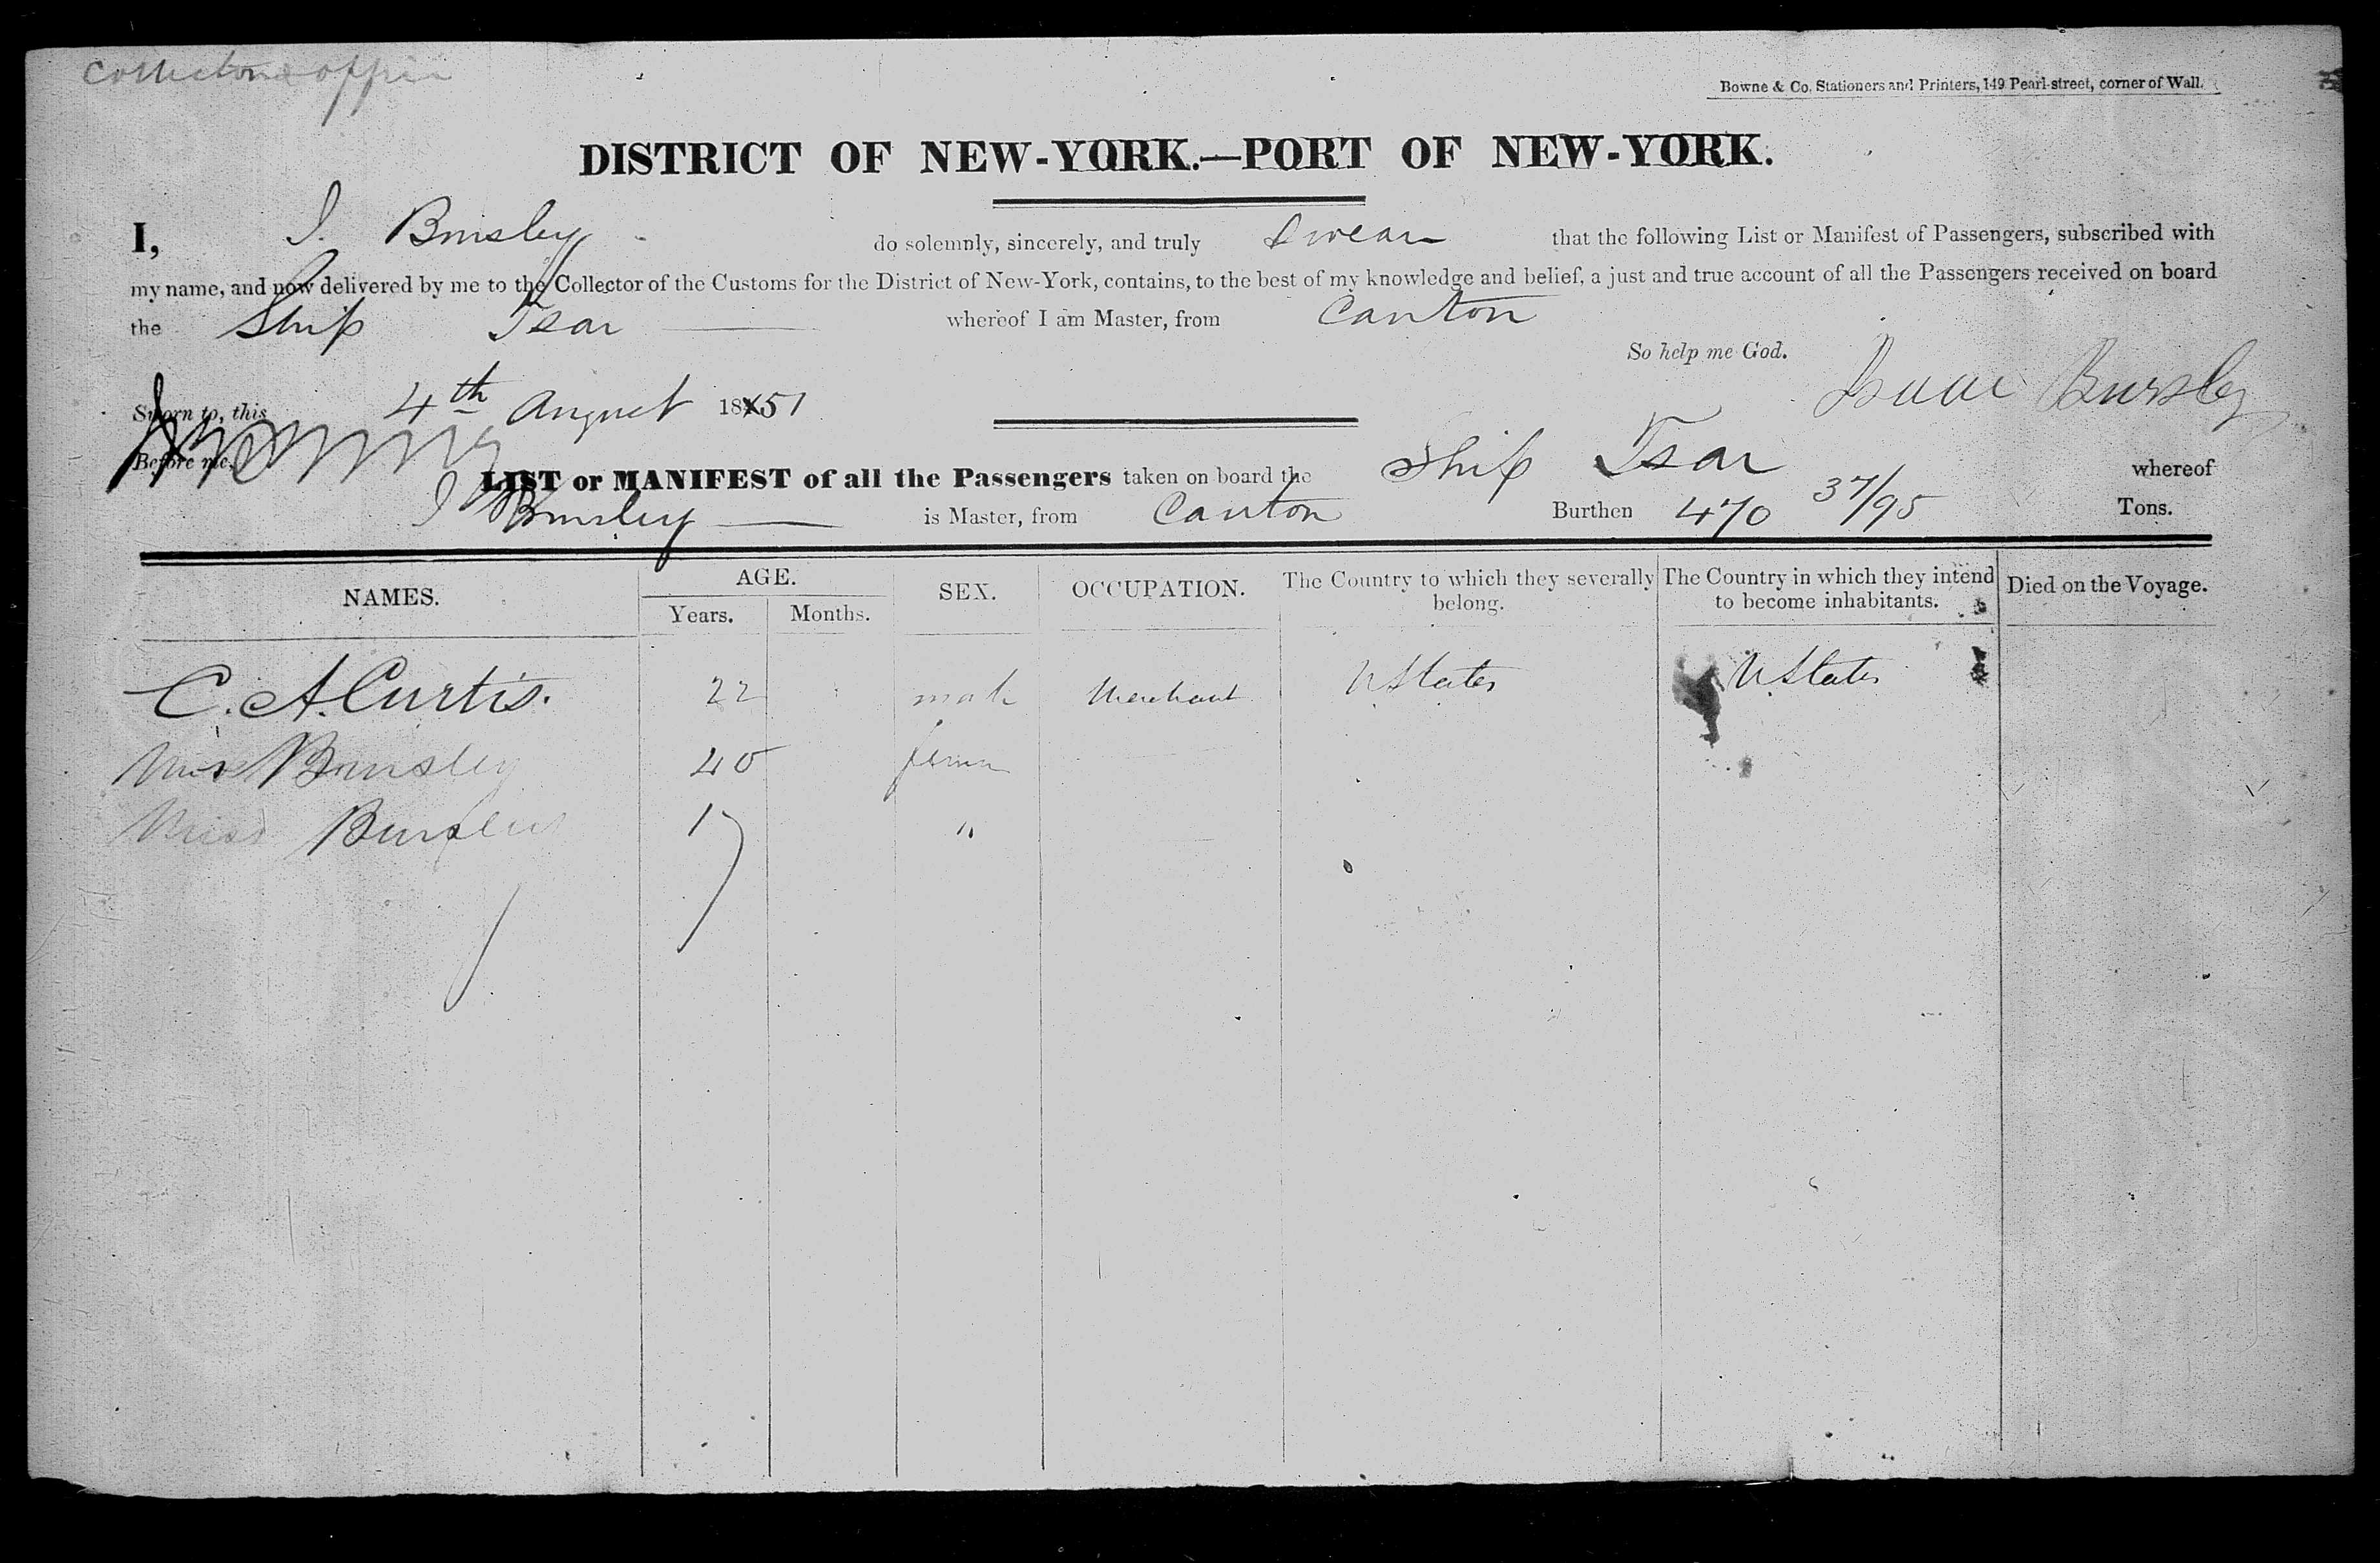 Collectors office
Bowne & Co. Stationers and Printers, 149 Pearl-street, corner of Wall.
DISTRICT OF NEW-YORK.—PORT OF NEW-YORK.
I, I. Bursley do solemnly, sincerely, and truly swear that the following List or Manifest of Passengers, subscribed with
my name, and now delivered by me to the Collector of the Customs for the District of New-York, contains, to the best of my knowledge and belief, a just and true account of all the Passengers received on board
the Ship Tsar whereof I am Master, from Canton
So help me God.
Isaac Bursley
Sworn to, this 4th August 1851
Before me,
LIST or MANIFEST of all the Passengers taken on board the Ship Tsar whereof
I Bursley is Master, from Canton Burthen 470 37/95 Tons.
NAMES. AGE. SEX. OCCUPATION. The Country to which they severally belong. The Country in which they intend to become inhabitants. Died on the Voyage.
Years. Months.
C. A. Curtis. 22 male Merchant U States U States
Mrs Bursley 40
Miss Bursley 17 "